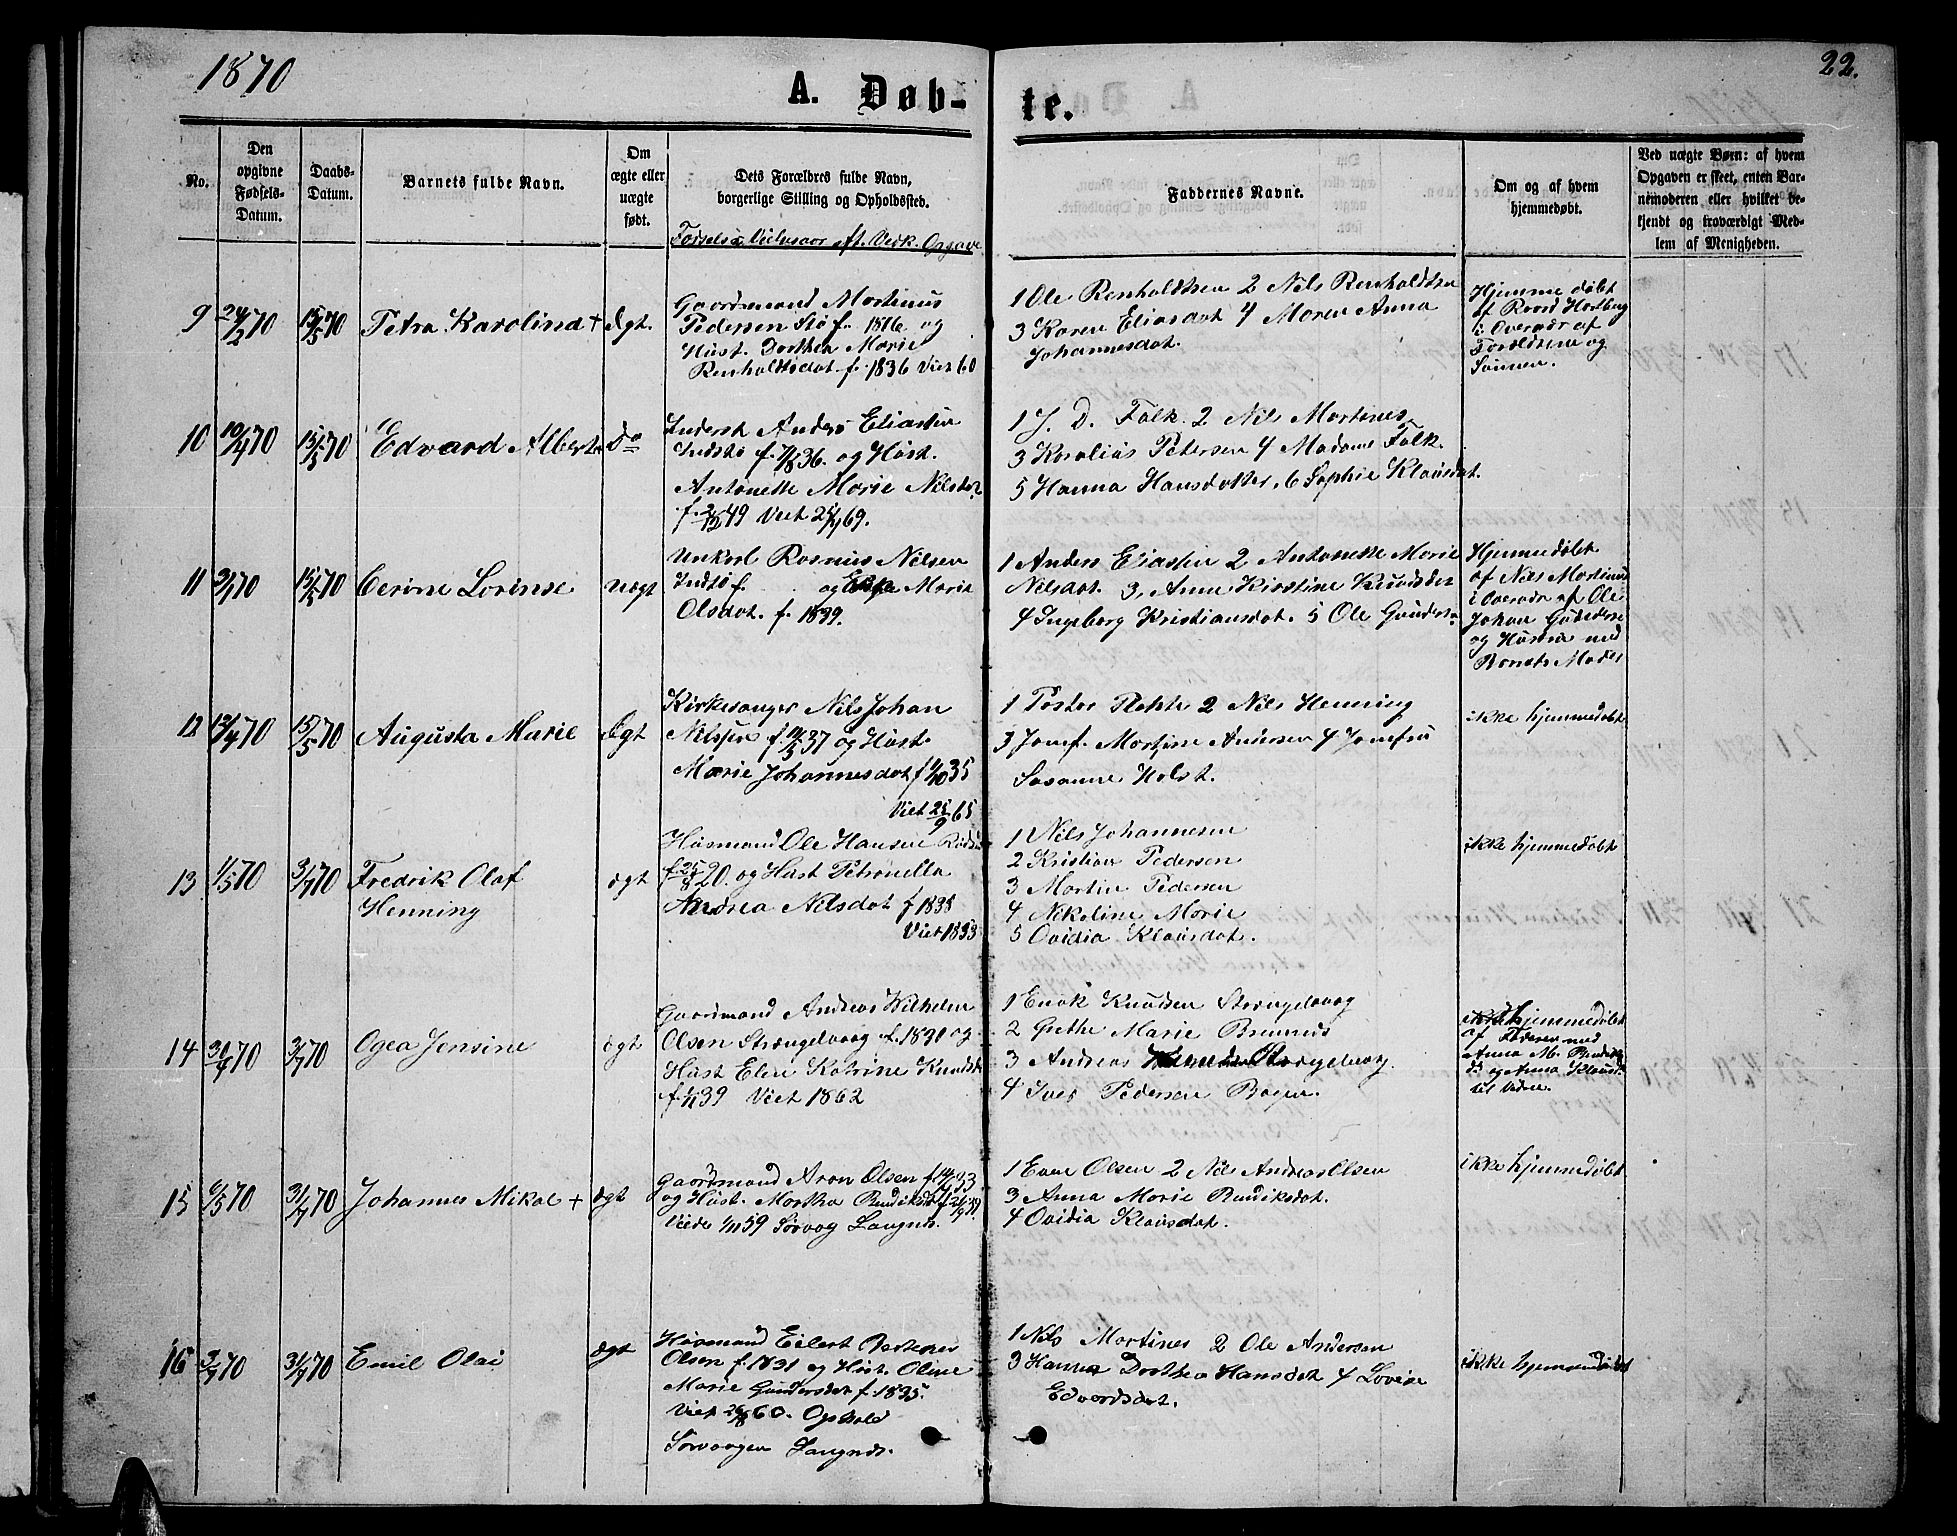 1870
22.
A. Døb-
te.
No.
Den opgivne Fødsels-Datum.
Daabs-Datum.
Barnets fulde Navn.
Om ægte eller uægte født.
Dets Forældres fulde Navn,
borgerlige Stilling og Opholdssted.
Faddernes Navne.
Om og af hvem
hjemmedøbt.
Ved uægte Børn: af hvem
Opgaven er skeet, enten Bar-
nemoderen eller hvilket be-
kjendt og troværdigt Med-
lem af Menigheden.
9
24/2 70
15/5 70
Petra Karolina +
Ægt.
Gaardmand Martinus
Pedersen Stø f. 1816 og
Hust. Dorthea Marie
Renholdtsdat f. 1836 Viet 60
1 Ole Renholdtsen 2 Nils Renholdtsen
3 Karen Eliasdat 4 Maren Anna
Johannesdat.
Hjemme døbt
i Overvær af
Forældrene og
10
10/4 70
15/5 70
Edvard Albert
Do
Inderst Anders Eliassen
Indstø f. 7/8 36. og Hust.
Antonette Marie Nilsdat
f. 2/12 49 Viet 69.
1 J. D. Falk. 2 Nils Martines
3 Kornelius Petersen 4 Madame Falk.
5 Hanna Hansdatter, 6 Sophie Klausdat.
11
70
15/5 70
Cerine Lorense
Uægt
Unkarl Rasmus Nilsen
Indstø f. og Marie
Olsdat. f. 1839.
1 Anders Eliassen 2 Antonette Marie
Nilsdat. 3, Anne Kirstine Knudsdat
4 Ingeborg Kristiansdat. 5 Ole Gundersen
Hjemmedøbt
af Nils Martinus
i Overvær af Ole
Johan
og Hustru med
Barnets Moder
12
12/4 70
15/5 70
Augusta Marie
Ægt
Kirkesanger Nils Johan
Nilssen f. 37 og Hust.
Marie Johannesdat f 1/10 35
Viet 25/9 65
1 Pastor 2 Nils Henning
3 Jomf. Martine Andersen 4 Jomfru
Sosanne Holst.
ikke hjemmedøbt
13
1/5 70
3/7 70
Fredrik Olaf
Henning
ægt
Husmand Ole Hansen
f. 25/8 20. og Hust Petronella
Andrea Nilsdat f 1838
Viet 1853
1 Nils Johannesen
2 Kristian Pedersen
3 Martin Pedersen
4 Nikoline Marie
5 Ovidia Klausdat.
ikke hjemmedøbt
14
30/4 70
3/7 70
Ogea Jensine
ægt
Gaardmand Andreas Wilhelm
Olsen Strængelvaag f. 1831 og
Hust Elen Katrine Knudsd
f. 39 Viet 1862
1 Enok Knudsen Strængelvaag
2 Grethe Marie
3 Andreas Strængelvaag.
4 Iver Pedersen Bogen.
hjemmedøbt
af Faderen med
Anna M.
og Anna Klausd.
til Vidne.
15
6/5 70
31/7 70
Johannes Mikal +
ægt
Gaardmand Aron Olsen f. 33
og Hust. Martha Bendiksdat f.
Viede 59 Sørvaag Langnes.
1 Even Olsen 2 Nils Andreas Olsen
3 Anna Marie Bendiksdat.
4 Ovidia Klausdat.
ikke hjemmedøbt
16
70
31/7 70
Emil Olai
ægt
Husmand Eilert
Olsen f. 1831 og Hust. Oline
Marie Gundersdat f. 1835.
Viet 60. Ophold
Sørvaagen Langnes.
1 Nils Martines 2 Ole Andersen
3 Hanna Dorthea Hansdat 4 Lovise
Edvardsdat.
ikke hjemmedøbt